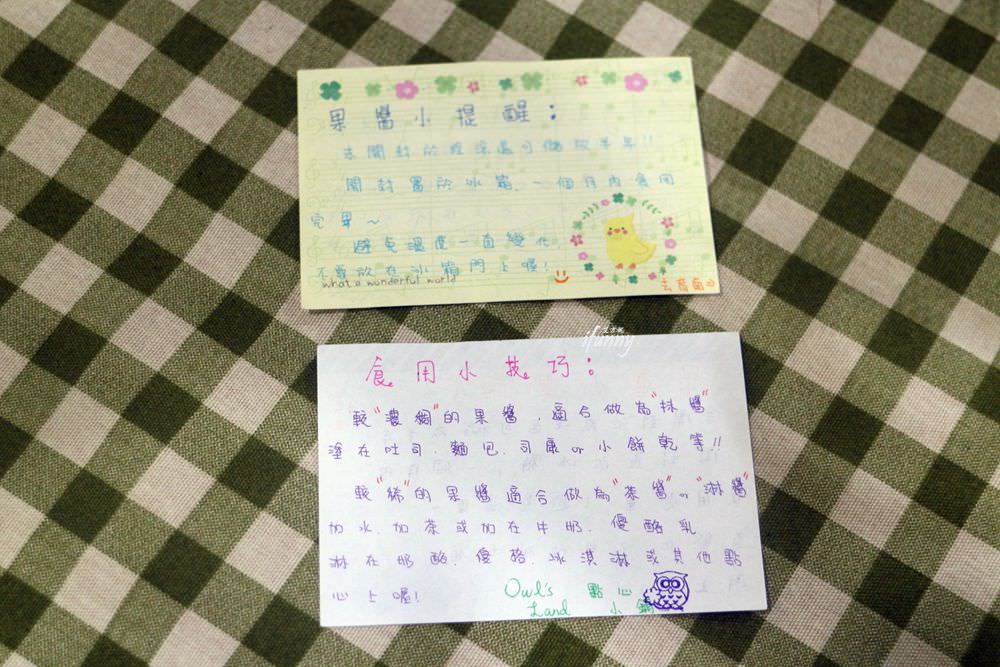 果醬小提醒：
未開封於陰涼處可儲放半年!!
開封置於冰箱.一個月內食用
完畢～
避免溫度一直變化,
不要放在冰箱門上喔!
what a wonderful world
去背面
ifunny
食用小技巧：
較"濃稠"的果醬.適合做為"抹醬"
塗在吐司.麵包.司康or小餅乾等!!
較"稀"的果醬適合做為"茶醬"or"淋醬"
加水.加茶或加在牛奶.優酪乳
淋在奶酪.優格.冰淇淋或其他點
心上喔!
Owl's 點心
Land 小鋪